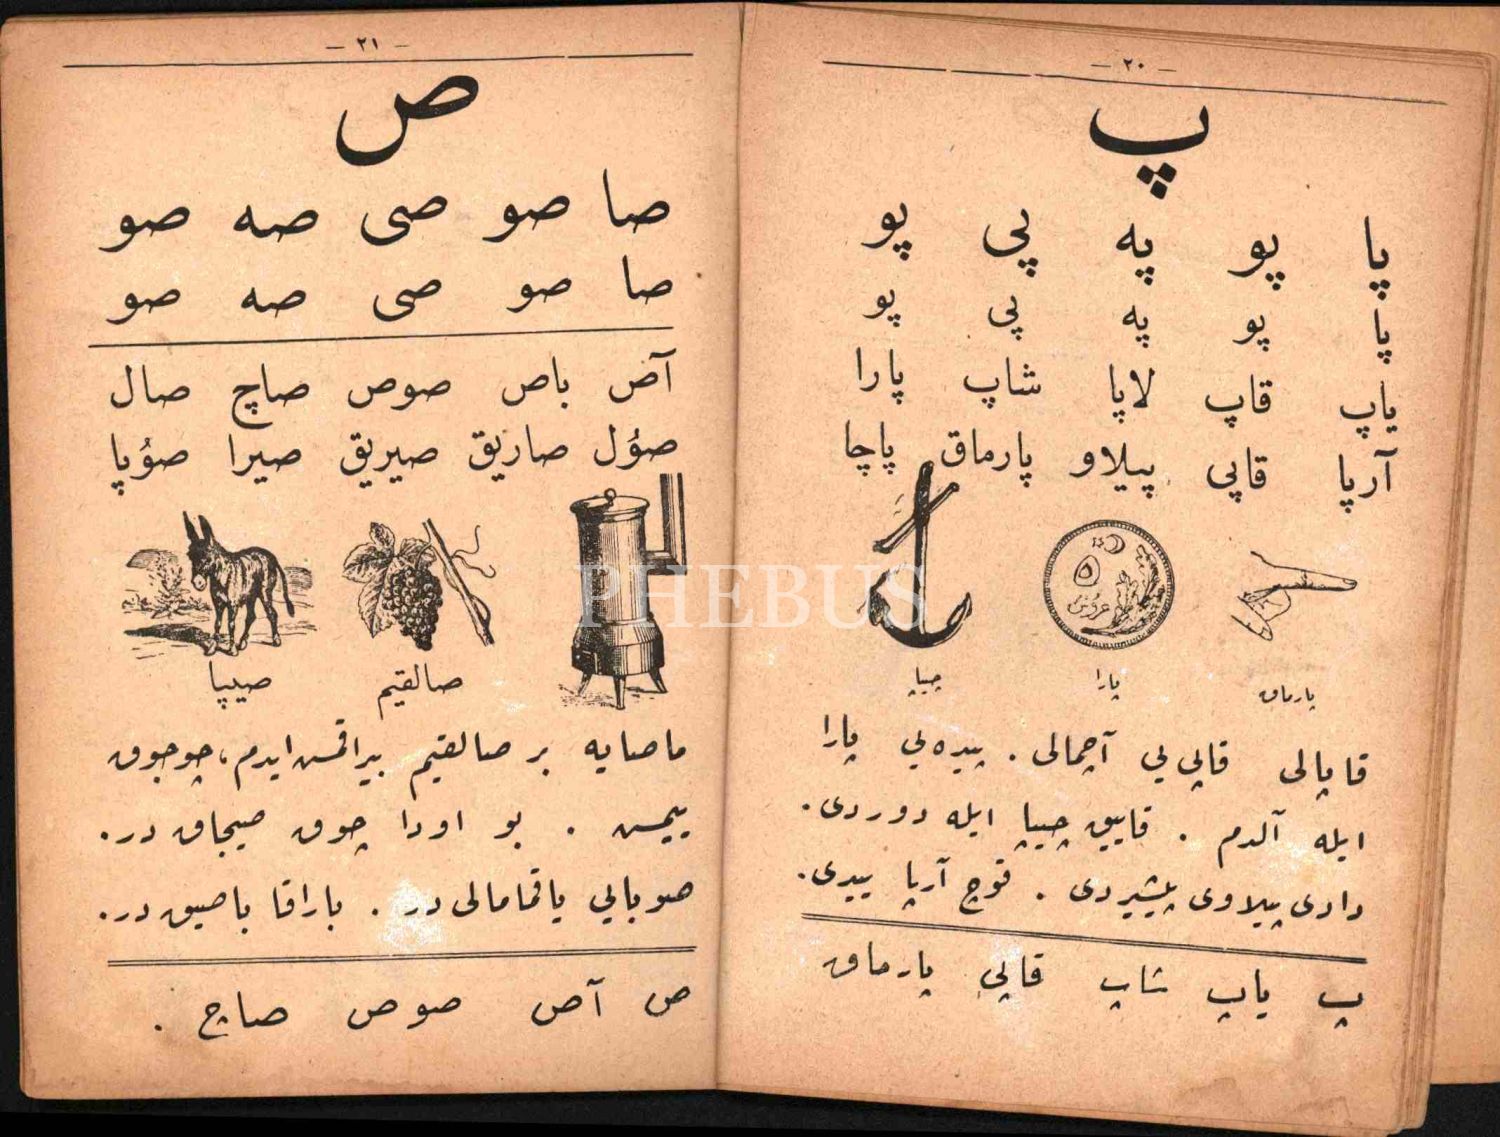 — ٢٠ —
پ
پا پو په پی پو
پا پو په پی پو
یاپ قاپ لاپا شاپ پارا
آرپا قاپی پیلاو پارماق پاچا
۵ غروش
پارماق پارا چیپا
قاپالی قاپی یی آچمالی . پیده یی پارا
ایله آلدم . قاییق چیپا ایله دوردی.
دادی پیلاوی پیشیردی . قوچ آرپا ییدی.
پ یاپ شاپ قاپی پارماق
— ٢١ —
ص
صا صو صی صه صو
صا صو صی صه صو
آص باص صوص صاچ صال
صؤل صاریق صیریق صیرا صؤپا
صالقیم صیپا
ماصایه بر صالقیم بیراقمس ایدم، چوجوق
ییمس . بو اودا چوق صیجاق در.
صوبایی یاقمامالی در . باراقا باصیق در.
ص آص صوص صاچ .
PHEBUS